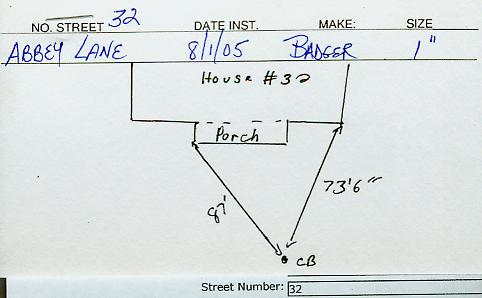 NO. STREET 32 DATE INST. MAKE: SIZE
ABBEY LANE 8/1/05 BADGER 1"
House #32
Porch
87'
73'6"
CB
Street Number: 32